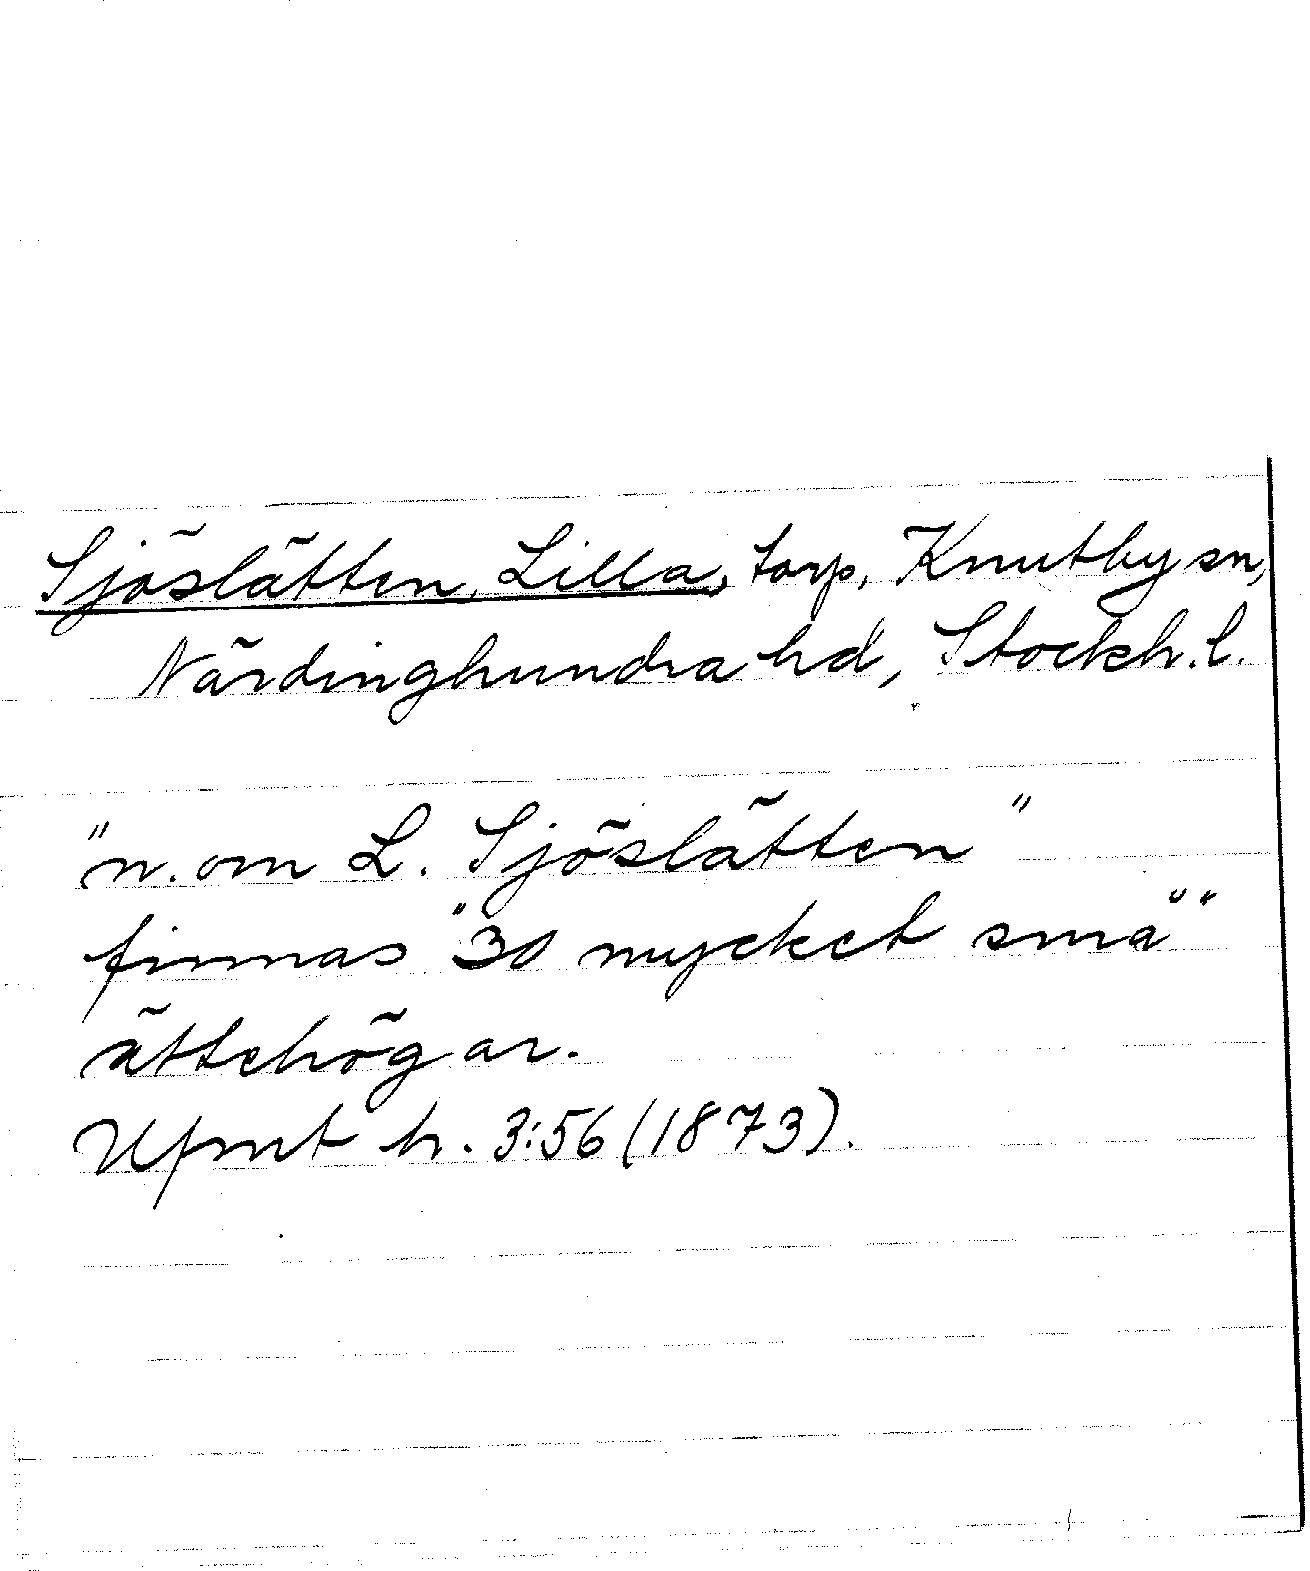 Sjöslätten, Lilla, torp, Knutby sn,
Närdinghundra hd, Stockh. l.
"n. om L. Sjöslätten"
finnas "30 mycket små"
ättehögar.
Ufmt h. 3:56 (1873).